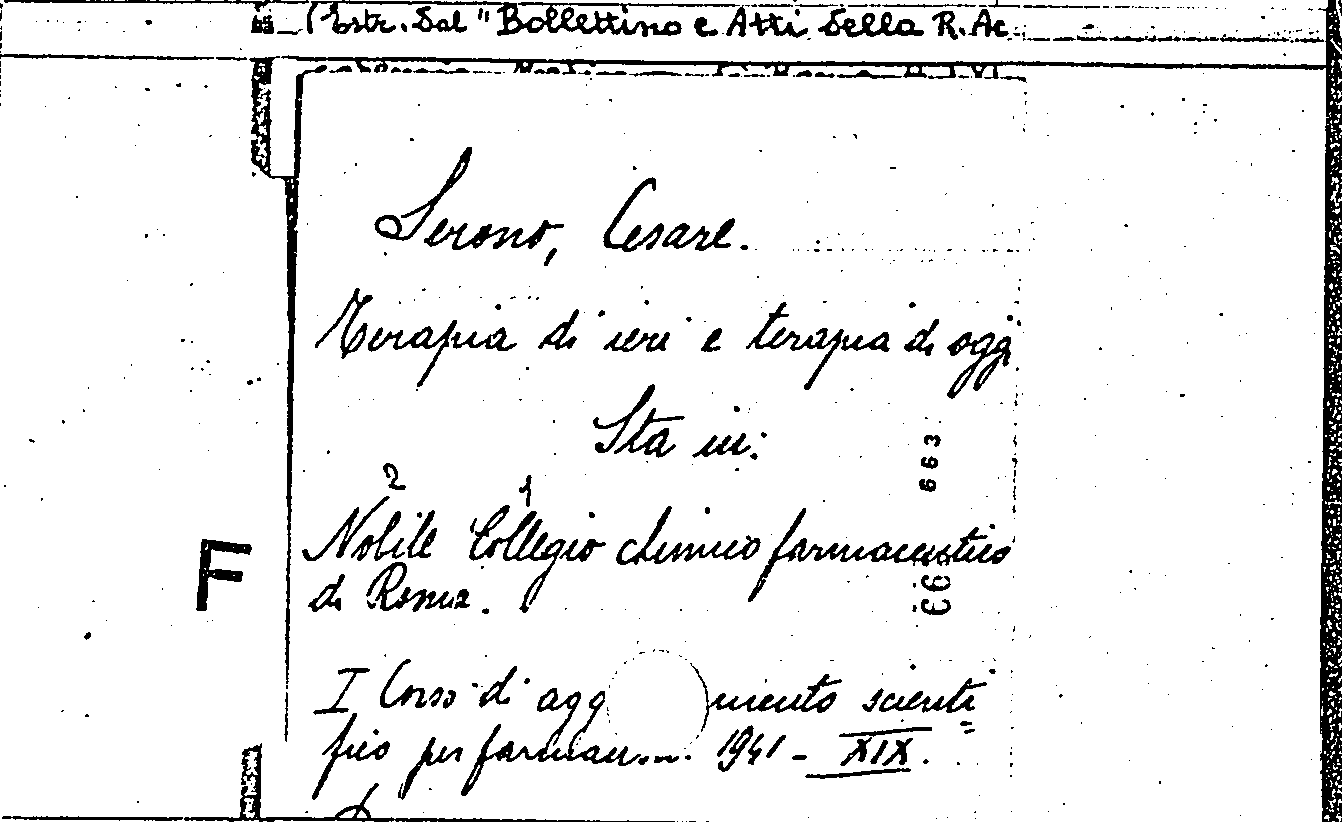 (Estr. dal "Bollettino e Atti della R. Ac
Serono, Cesare.
Terapia di ieri e terapia di oggi
Sta in:
663
2 1
Nobile Collegio chimico farmaceutico
di Roma.
F
663
I Corso di agg mento scienti
fico per farmac... 1941 - XIX.